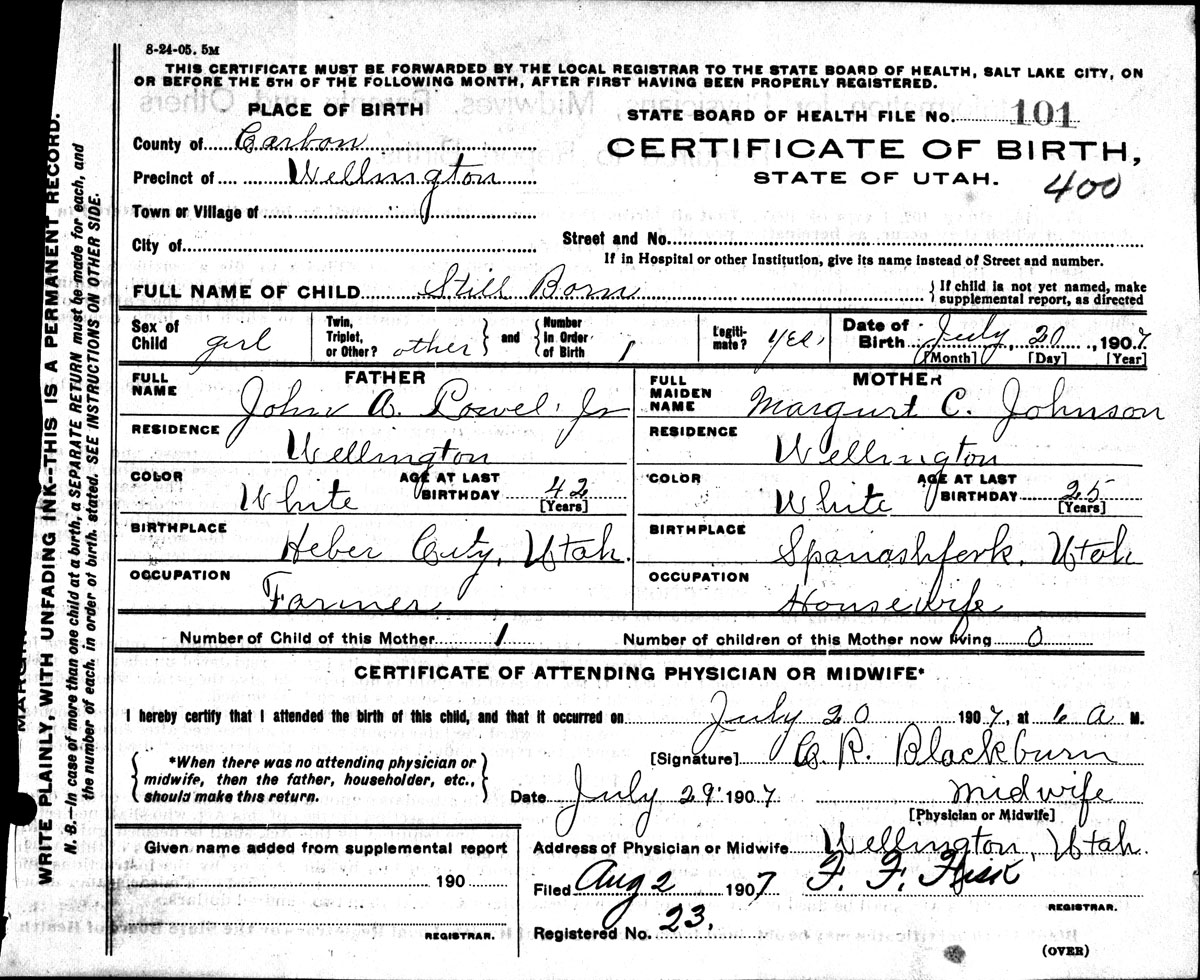 8-24-05. 5M
THIS CERTIFICATE MUST BE FORWARDED BY THE LOCAL REGISTRAR TO THE STATE BOARD OF HEALTH, SALT LAKE CITY, ON
OR BEFORE THE 5TH OF THE FOLLOWING MONTH, AFTER FIRST HAVING BEEN PROPERLY REGISTERED.
PLACE OF BIRTH
STATE BOARD OF HEALTH FILE No. 101
County of Carbon
CERTIFICATE OF BIRTH,
Precinct of Wellington
STATE OF UTAH.
400
Town or Village of
City of
Street and No.
If in Hospital or other Institution, give its name instead of Street and number.
FULL NAME OF CHILD Still Born
If child is not yet named, make
supplemental report, as directed
Sex of Child girl
Twin, Triplet, or Other? other and Number in Order of Birth 1
Legitimate? yes,
Date of Birth July 20, 1907.
[Month] [Day] [Year]
FATHER
FULL NAME John A. Powel Jr
RESIDENCE Wellington
COLOR White AGE AT LAST BIRTHDAY 42
[Years]
BIRTHPLACE Heber City, Utah.
OCCUPATION Farmer
MOTHER
FULL MAIDEN NAME Margurt C. Johnson
RESIDENCE Wellington
COLOR White AGE AT LAST BIRTHDAY 25
[Years]
BIRTHPLACE Spanashfork, Utah
OCCUPATION Housewife
Number of Child of this Mother 1 Number of children of this Mother now living 0
CERTIFICATE OF ATTENDING PHYSICIAN OR MIDWIFE*
I hereby certify that I attended the birth of this child, and that it occurred on July 20 1907, at 6 A M.
*When there was no attending physician or
midwife, then the father, householder, etc.,
should make this return.
[Signature] C. R. Blackburn
Date July 29 1907 midwife
[Physician or Midwife]
Given name added from supplemental report
190
REGISTRAR.
Address of Physician or Midwife Wellington, Utah.
Filed Aug 2 1907 F. F. Fisk
REGISTRAR.
Registered No. 23.
(OVER)
WRITE PLAINLY, WITH UNFADING INK--THIS IS A PERMANENT RECORD.
N. B.-In case of more than one child at a birth, a SEPARATE RETURN must be made for each, and
the number of each, in order of birth, stated. SEE INSTRUCTIONS ON OTHER SIDE.